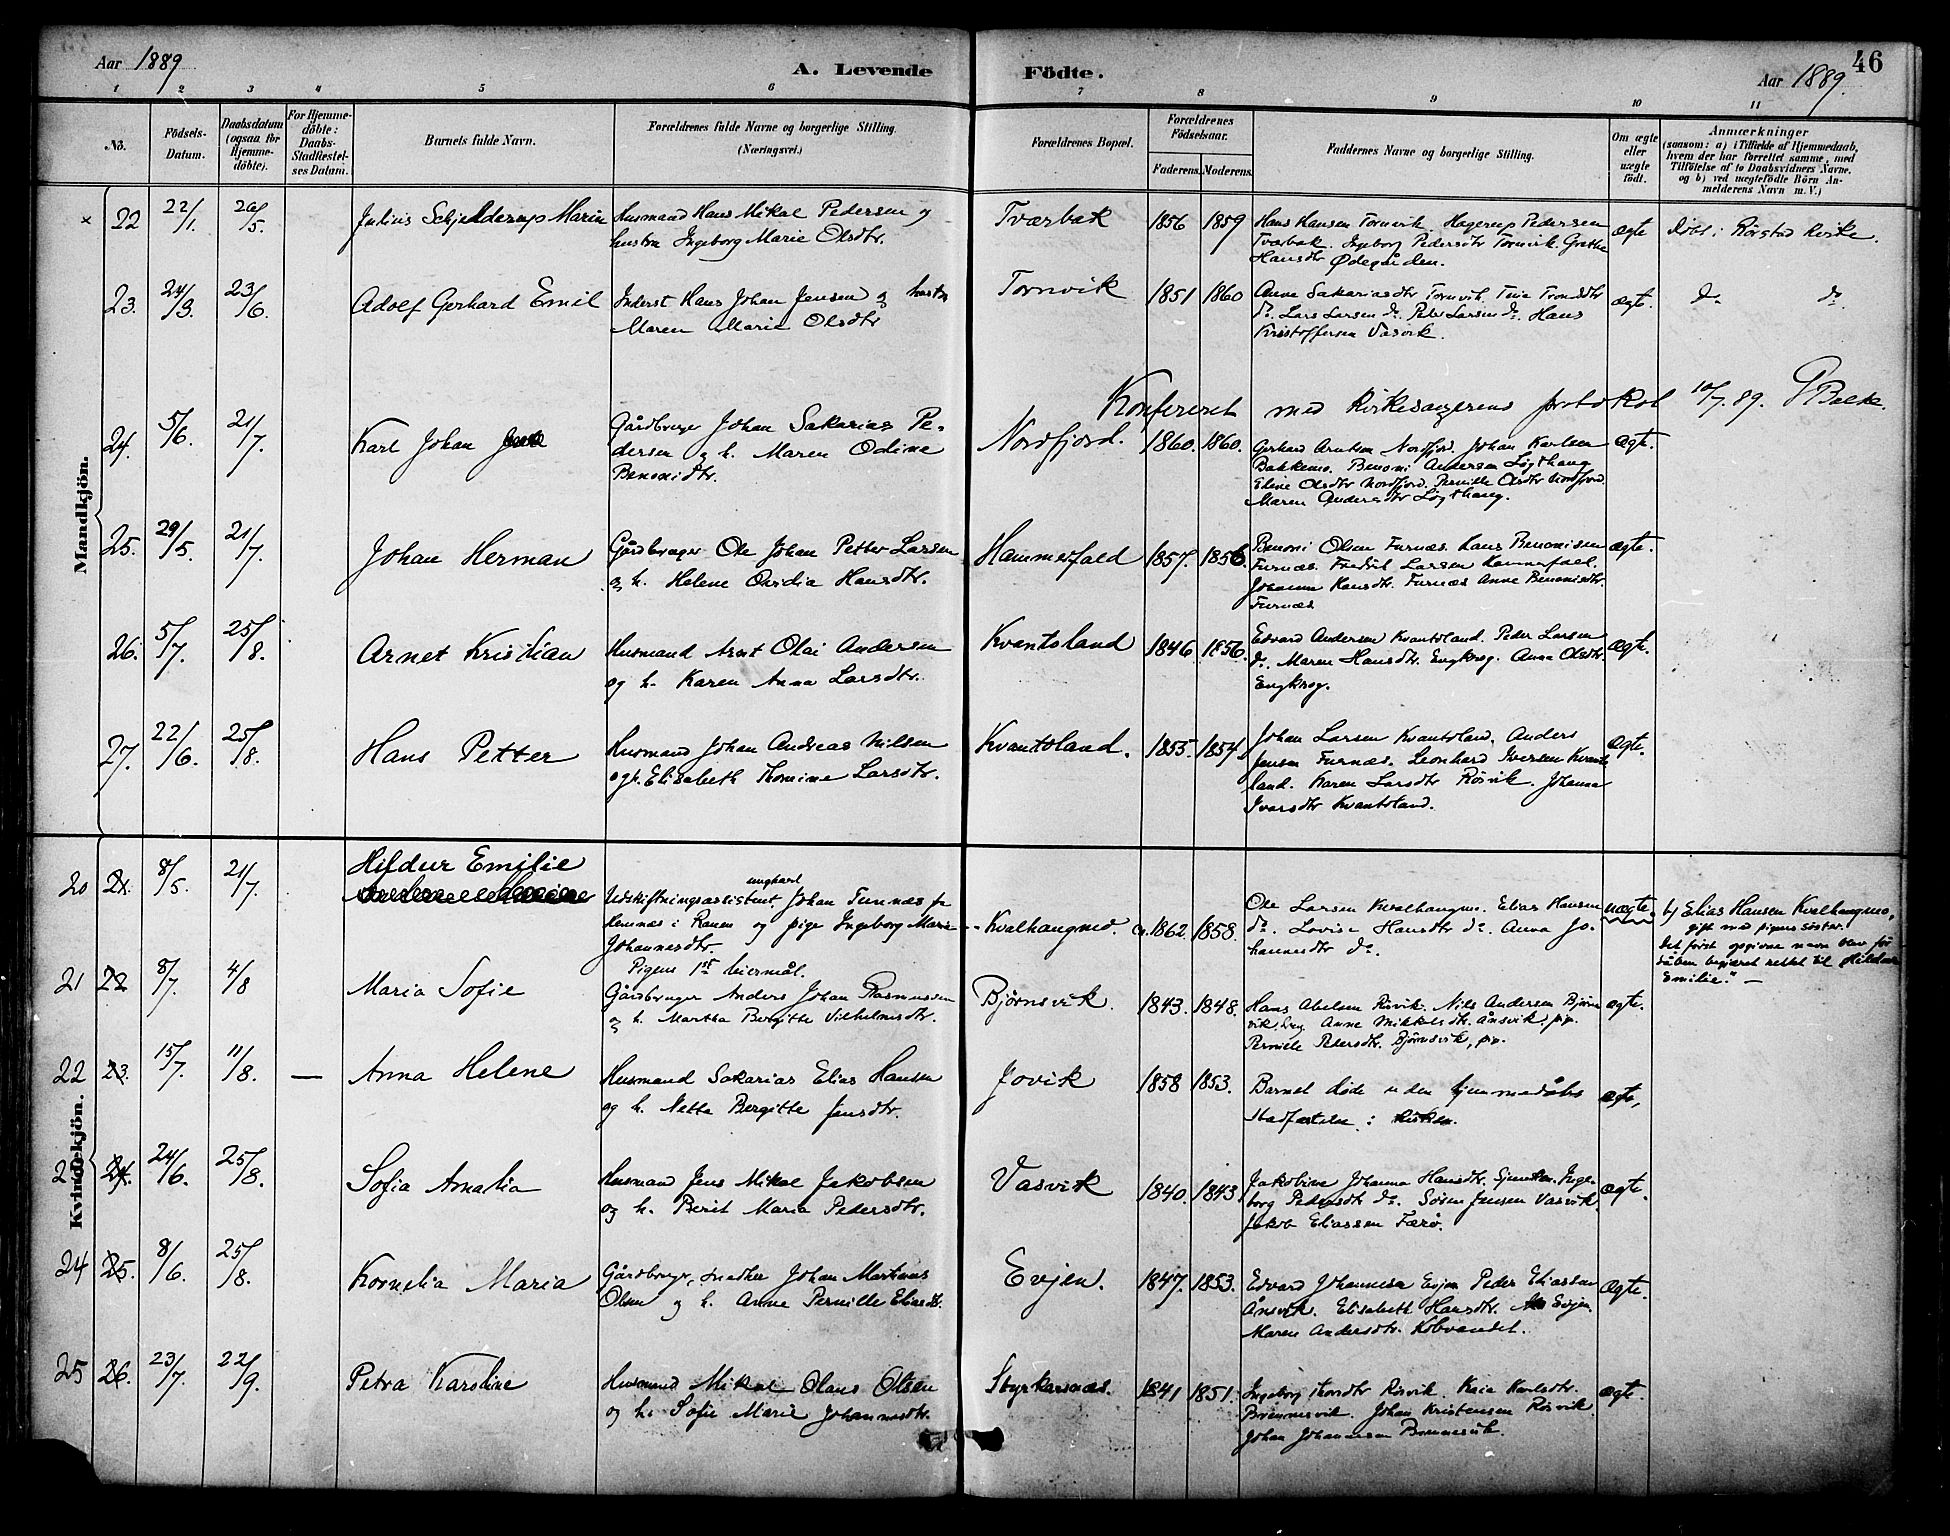 Aar 1889
A. Levende Födte.
46
Aar 1889.
1 2 3 4 5 6 7 8 9 10 11
No.
Födsels-Datum.
Daabsdatum (ogsaa for Hjemme-döbte).
For Hjemme-döbte: Daabs-Stadfæstel-ses Datum.
Barnets fulde Navn.
Forældrenes fulde Navne og borgerlige Stilling. (Næringsvei.)
Forældrenes Bopæl.
Forældrenes Födselsaar.
Faderens. Moderens.
Faddernes Navne og borgerlige Stilling.
Om ægte eller uægte födt.
Anmærkninger
(saasom: a) i Tilfælde af Hjemmedaab,
hvem der har forrettet samme, med
Tilföielse af to Daabsvidners Navne,
og b) ved uægtefödte Börn An-
melderens Navn m. V.)
Mandkjön.
× 22 22/1. 26/5. Julius Schjelderup Marin
Husmand Hans Mikal Pedersen og
hustru Ingeborg Marie Olsdtr.
Tværbak 1856 1859
Hans Hansen Tornvik. Hagerup Pedersen
Tværbak. Ingeborg Pedersdtr Tornvik. Grethe
Hansdtr Ødegården.
ægte
Döbt i Rørstad Kirke.
23. 24/3. 23/6. Adolf Gerhard Emil
Inderst Hans Johan Jensen og hustru
Maren Marie Olsdtr
Tornvik 1851 1860
Anne Sakariasdtr Tornvik.
do. Lars Larsen do. Peder Larsen do. Hans
Kristoffersen Vasvik.
ægte.
do do
Konfereret med Kirkesangerens protokol 10/7. 89. Balk.
24. 5/6. 21/7. Karl Johan
Gårdbruger Johan Sakarias Pe-
dersen og h. Maren Odine
Benonidtr.
Nordfjord. 1860. 1860.
Gerhard Arntsen Nordfjord. Johan Karlsen
Bakkemo. Benoni Andersen Løgthaug
Eline Olsdtr Nordfjord. Pernille Olsdtr Nordfjord.
Maren Andersdtr Løgthaug.
Ægte.
25. 29/5. 21/7. Johan Herman
Gårdbruger Ole Johan Petter Larsen
og h. Helene Ovidia Hansdtr.
Hammerfald 1857. 1856.
Benoni Olsen Furnæs. Hans Benonisen
Furnæs. Fredrik Larsen Hammerfald.
Johanna Hansdtr. Furnæs Anne Benonisdtr.
Furnæs
ægte.
26. 5/7. 25/8. Arnet Kristian
Husmand Arnt Olai Andersen
og h. Karen Anna Larsdtr.
Kvantoland 1846 1856.
Edvard Andersen Kvantoland. Peder Larsen
do. Maren Hansdtr. Engkrog. Anna Olsdtr.
Engkrog.
Ægte.
27. 22/6. 25/8. Hans Petter
Husmand Johan Andreas Nilsen
og h. Elisabeth Thomine Larsdtr.
Kvantoland. 1855. 1854.
Johan Larsen Kvantoland. Anders
Jensen Furnæs. Leonhard Iversen Kvanto
land. Karen Larsdtr Røsvik. Johanna
Ivarsdtr Kvantoland.
Ægte.
Kvindekjön.
20 21. 8/5. 21/7. Hildur Emilie
Udskiftningsassistent, ungkarl Johan Tunnæs fra
Hemnæs i Ranen og pige Ingeborg Marie
Johannesdtr.
Pigens 1ste leiermål.
Kvalhaugmo. ca. 1862. 1858.
Ole Larsen Kvalhaugmo. Elias Hansen
do. Lovise Hansdtr do. Anna Jo-
hannesdtr do.
uægte.
b) Elias Hansen Kvalhaugmo,
gift med pigens söster.
Det först opgivne navn blev för
dåben begjæret rettet til "Hildur
Emilie." —
21 22 8/7. 4/8 Maria Sofie
Gårdbruger Anders Johan Rasmussen
og h. Martha Bergitte Vilhelmsdtr.
Bjørnsvik. 1843. 1848.
Hans Abelsen Røsvik. Nils Andersen Bjørns
vik, Anne Mikkelsdtr. Ånsvik, pig.
Pernille Pedersdtr. Bjørnsvik, pig.
ægte.
22 23. 15/7. 11/8. — Anna Helene
Husmand Sakarias Elias Hansen
og h. Netta Bergitte Jensdtr.
Jovik 1858 1853.
Barnet døde uden hjemmedåbs
stadfæstelse i kirken.
ægte,
23 24. 24/6. 25/8. Sofia Amalia
Husmand Jens Mikal Jakobsen
og h. Berit Maria Pedersdtr.
Vasvik 1840. 1843
Jakobine Johanna Hansdtr. Inge-
borg Pedersdtr do. Søren Jensen Vasvik
Jakob Eliassen Færø.
Ægte.
24 25. 8/6. 25/8. Kornelia Maria
Gårdbruger, snedker Johan Martinus
Olsen og h. Anne Pernille Eliasdtr.
Evjen. 1847. 1853.
Edvard Johannesen Evjen Peder Eliassen
Ånsvik. Elisabeth Hansdtr. Evjen.
Maren Andersdtr. Kobvandet.
Ægte.
25 26. 23/7. 22/9. Petra Karoline
Husmand Mikal Olaus Olsen
og h. Sofie Marie Johannesdtr.
Styrkarsnæs. 1841 1851.
Ingeborg Thordtr Røsvik. Kaia Karlsdtr.
Brennesvik. Johan Kristensen Røsvik
Johan Johannesen Brennesvik.
ægte.